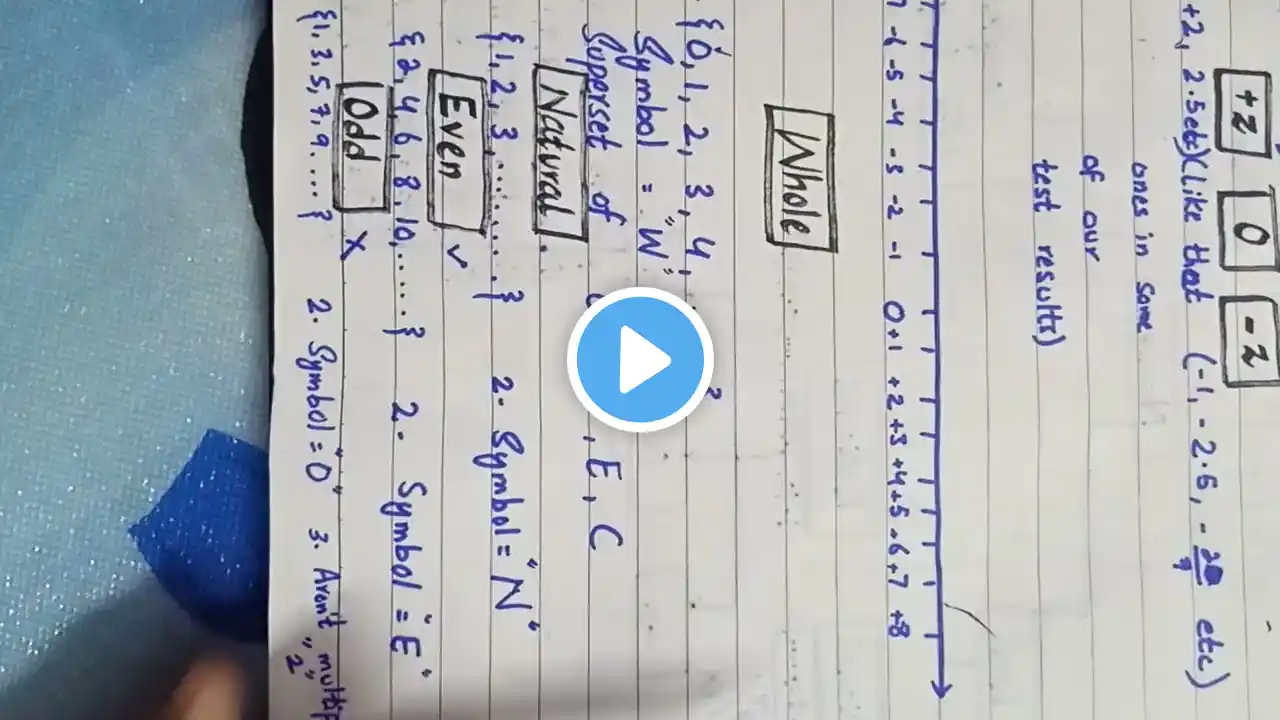 +z 0 -z
+2, 2.5etc)(Like that (-1, -2.5, - etc)
ones in some
of our
test results)
-6 -5 -4 -3 -2 -1 0 +1 +2 +3 +4 +5 +6 +7 +8
Whole
{0, 1, 2, 3, 4,
Symbol = "W"
Superset of , E, C
Natural
{1, 2, 3, ........} 2. Symbol = "N"
Even ✓
{2, 4, 6, 8, 10, ......} 2. Symbol = "E"
Odd X
{1, 3, 5, 7, 9 ....} 2. Symbol = "O" 3. Aron't
"2"